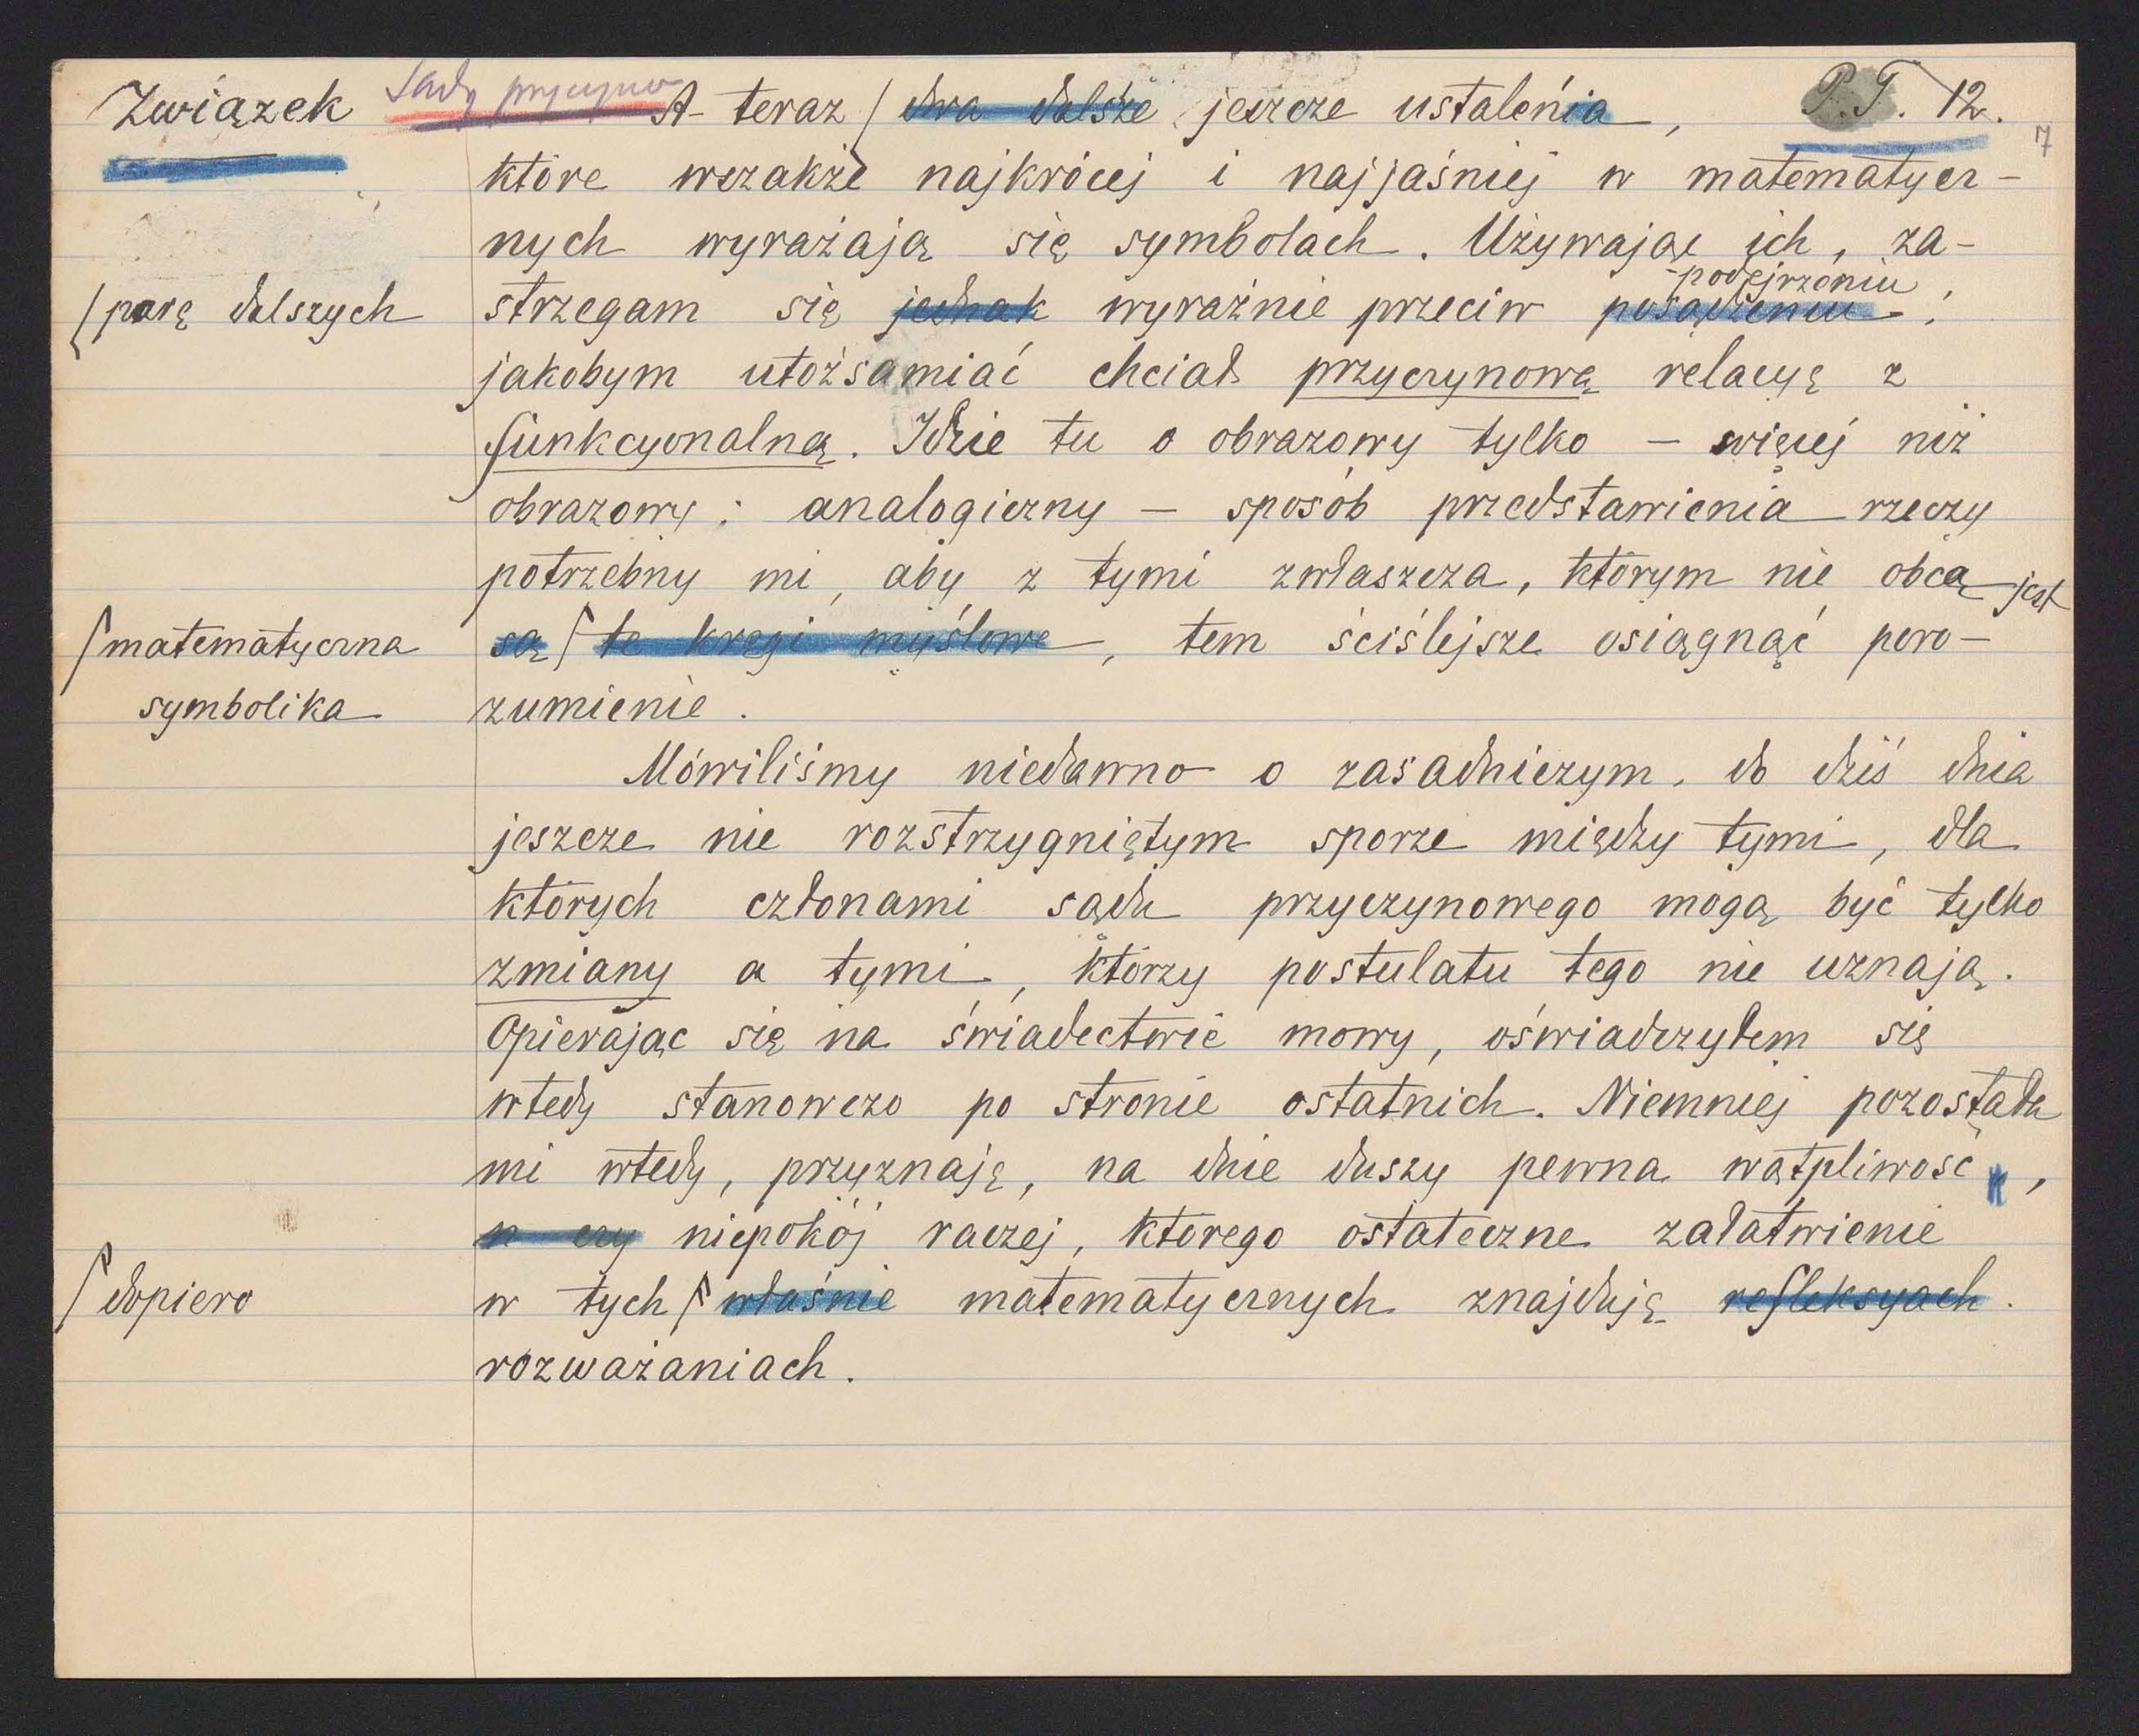 Związek Sądy przyczynow A teraz / dwa dalsze jeszcze ustalenia, P.T. 12.
7
które wszakże najkrócej i najjaśniej w matematycz-
nych wyrażają się symbolach. Używając ich, za-
podejrzeniu
/ parę dalszych strzegam się jednak wyraźnie przeciw posądzeniu,
jakobym utożsamiać chciał przyczynową relacyę z
funkcyonalną. Idzie tu o obrazowy tylko – więcej niż
obrazowy: analogiczny – sposób przedstawienia rzeczy
potrzebny mi, aby z tymi zwłaszcza, którym nie obcą jest
/ matematyczna są / te kręgi myślowe, tem ściślejsze osiągnąć poro-
symbolika zumienie.
Mówiliśmy niedawno o zasadniczym, do dziś dnia
jeszcze nie rozstrzygniętym sporze między tymi, dla
których członami sądu przyczynowego mogą być tylko
zmiany a tymi, którzy postulatu tego nie uznają.
Opierając się na świadectwie mowy, oświadczyłem się
wtedy stanowczo po stronie ostatnich. Niemniej pozostała
mi wtedy, przyznaję, na dnie duszy pewna wątpliwość,
n czy niepokój raczej, którego ostateczne załatwienie
/ dopiero w tych / właśnie matematycznych znajduję refleksyach.
rozważaniach.